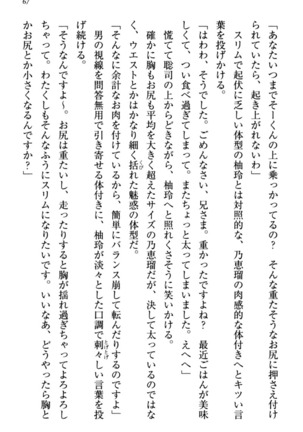 67
「あなたいつまでそーくんの上に乗っかってるの？　そんな重たそうなお尻に押さえ付け
られていたら、起き上がれないわ」
　スリムで起伏に乏しい体型の柚玲とは対照的な、乃恵瑠の肉感的な体付きへとキツい言
葉を投げかける。
「はわわ、そうでした。ごめんなさい、兄さま。重かったですよね？　最近ごはんが美味
しくて、つい食べ過ぎてしまって。またちょっと太ってしまいました。えへへ」
　慌てて聡司の上からどきながら、柚玲へと照れくさそうに笑いかける。
　確かに胸もお尻も平均を大きく超えたサイズの乃恵瑠だが、決して太っているのではな
く、ウエストとかはかなり細く括れた魅惑の体型だ。
「そんなに余計なお肉を付けているから、簡単にバランス崩して転んだりするのですよ」
　男の視線を問答無用で引き寄せる体付きに、柚玲が淡々とした口調で刺々しい言葉を投
げ続ける。
「そうなんですよ〜。お尻は重たいし、走ったりすると胸が揺れ過ぎちゃってよろよろし
ちゃって。わたくしもそんなふうにスリムになりたいです。いいなぁ、どうやったら胸と
かお尻とか小さくなるんですか？」